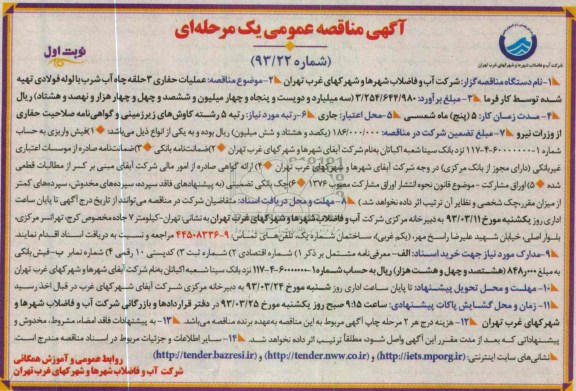 آگهی مناقصه عمومی یک مرحله‌ای
(شماره ۹۳/۲۲)
نوبت اول
شرکت آب و فاضلاب شهرها و شهرکهای غرب تهران
۱-نام دستگاه مناقصه‌گزار: شرکت آب و فاضلاب شهرها و شهرکهای غرب تهران ۲-موضوع مناقصه: عملیات حفاری ۳ حلقه چاه آب شرب با لوله فولادی تهیه
شده توسط کار فرما ۳- مبلغ برآورد: ۳/۲۵۴/۶۴۴/۹۸۰ (سه میلیارد و دویست و پنجاه و چهار میلیون و ششصد و چهل و چهار هزار و نهصد و هشتاد) ریال
۴- مدت زمان کار: ۵ (پنج) ماه شمسی ۵- محل اعتبار: جاری ۶- رتبه مورد نیاز: رتبه ۵ رشته کاوش‌های زیرزمینی و گواهی‌نامه صلاحیت حفاری
از وزارت نیرو ۷- مبلغ تضمین شرکت در مناقصه: ۱۸۶/۰۰۰/۰۰۰ (یکصد و هشتاد و شش میلیون) ریال بوده و به یکی از انواع ذیل می‌باشد: ۱)فیش واریزی به حساب
شماره ۱-۶۰۰۰۰۰۰-۴-۱۱۷ نزد بانک سینا شعبه اکباتان بنام شرکت آبفای شهرها و شهرکهای غرب تهران ۲)ضمانت‌نامه بانکی ۳)ضمانت‌نامه صادره از موسسات اعتباری
غیربانکی (دارای مجوز از بانک مرکزی) در وجه شرکت آبفای شهرها و شهرکهای غرب تهران ۴) ارائه گواهی صادره از امور مالی شرکت آبفای مبنی بر کسر از مطالبات قطعی
شده ۵)اوراق مشارکت - موضوع قانون نحوه انتشار اوراق مشارکت مصوب ۱۳۷۶ ۶)چک بانکی تضمینی (به پیشنهادهای فاقد سپرده، سپرده‌های مخدوش، سپرده‌های کمتر
از میزان مقرر،چک شخصی و نظایر آن ترتیب اثر داده نخواهد شد.) ۸- مهلت و محل دریافت اسناد: متقاضیان شرکت در مناقصه می‌توانند از تاریخ درج آگهی تا پایان ساعت
اداری روز یکشنبه مورخ ۹۳/۰۳/۱۱ به دبیرخانه مرکزی شرکت آب و فاضلاب شهرها و شهرکهای غرب تهران به نشانی تهران-کیلومتر ۷ جاده مخصوص کرج، تهرانسر مرکزی،
بلوار اصلی، خیابان شهید علیرضا راسخ مهر، (یکم غربی)، ساختمان شماره یک، تلفن‌های تماس: ۹-۴۴۵۰۸۳۳۶ مراجعه و نسبت به دریافت اسناد اقدام نمایند.
۹-مدارک مورد نیاز جهت خرید اسناد: الف- معرفی‌نامه مشتمل بر ذکر ۱) شماره اقتصادی ۲) شماره ثبت ۳) کدپستی ۱۰ رقمی ۴) شماره نمابر ب-فیش بانکی
به مبلغ ۸۴۸/۰۰۰ (هشتصد و چهل و هشت هزار) ریال به حساب شماره ۱-۶۰۰۰۰۰۰-۴-۱۱۷ نزد بانک سینا شعبه اکباتان بنام شرکت آبفای شهرها و شهرکهای غرب تهران
۱۰- مهلت و محل تحویل پیشنهاد: تا پایان ساعت اداری روز شنبه مورخ ۹۳/۰۳/۲۴ به دبیرخانه مرکزی شرکت آبفای شهرها و شهرکهای غرب در قبال اخذ رسید
۱۱- زمان و محل گشایش پاکات پیشنهادی: ساعت ۹:۱۵ صبح روز یکشنبه مورخ ۹۳/۰۳/۲۵ در دفتر قراردادها و بازرگانی شرکت آب و فاضلاب شهرها و
شهرکهای غرب تهران ۱۲- هزینه درج هر ۲ مرحله چاپ آگهی مربوط به این مناقصه به‌عهده برنده مناقصه می‌باشد. ۱۳- به پیشنهادات فاقد امضاء، مشروط، مخدوش و
پیشنهاداتی که بعد از مدت مقرر این آگهی واصل شود، مطلقاً ترتیب اثر داده نخواهد شد. ۱۴- سایر اطلاعات و جزئیات مربوط در اسناد مناقصه مندرج است.
نشانی‌های سایت اینترنتی: (http://iets.mporg.ir) و (http://tender.nww.co.ir) و (http://tender.bazresi.ir)
روابط عمومی و آموزش همگانی
شرکت آب و فاضلاب شهرها و شهرکهای غرب تهران